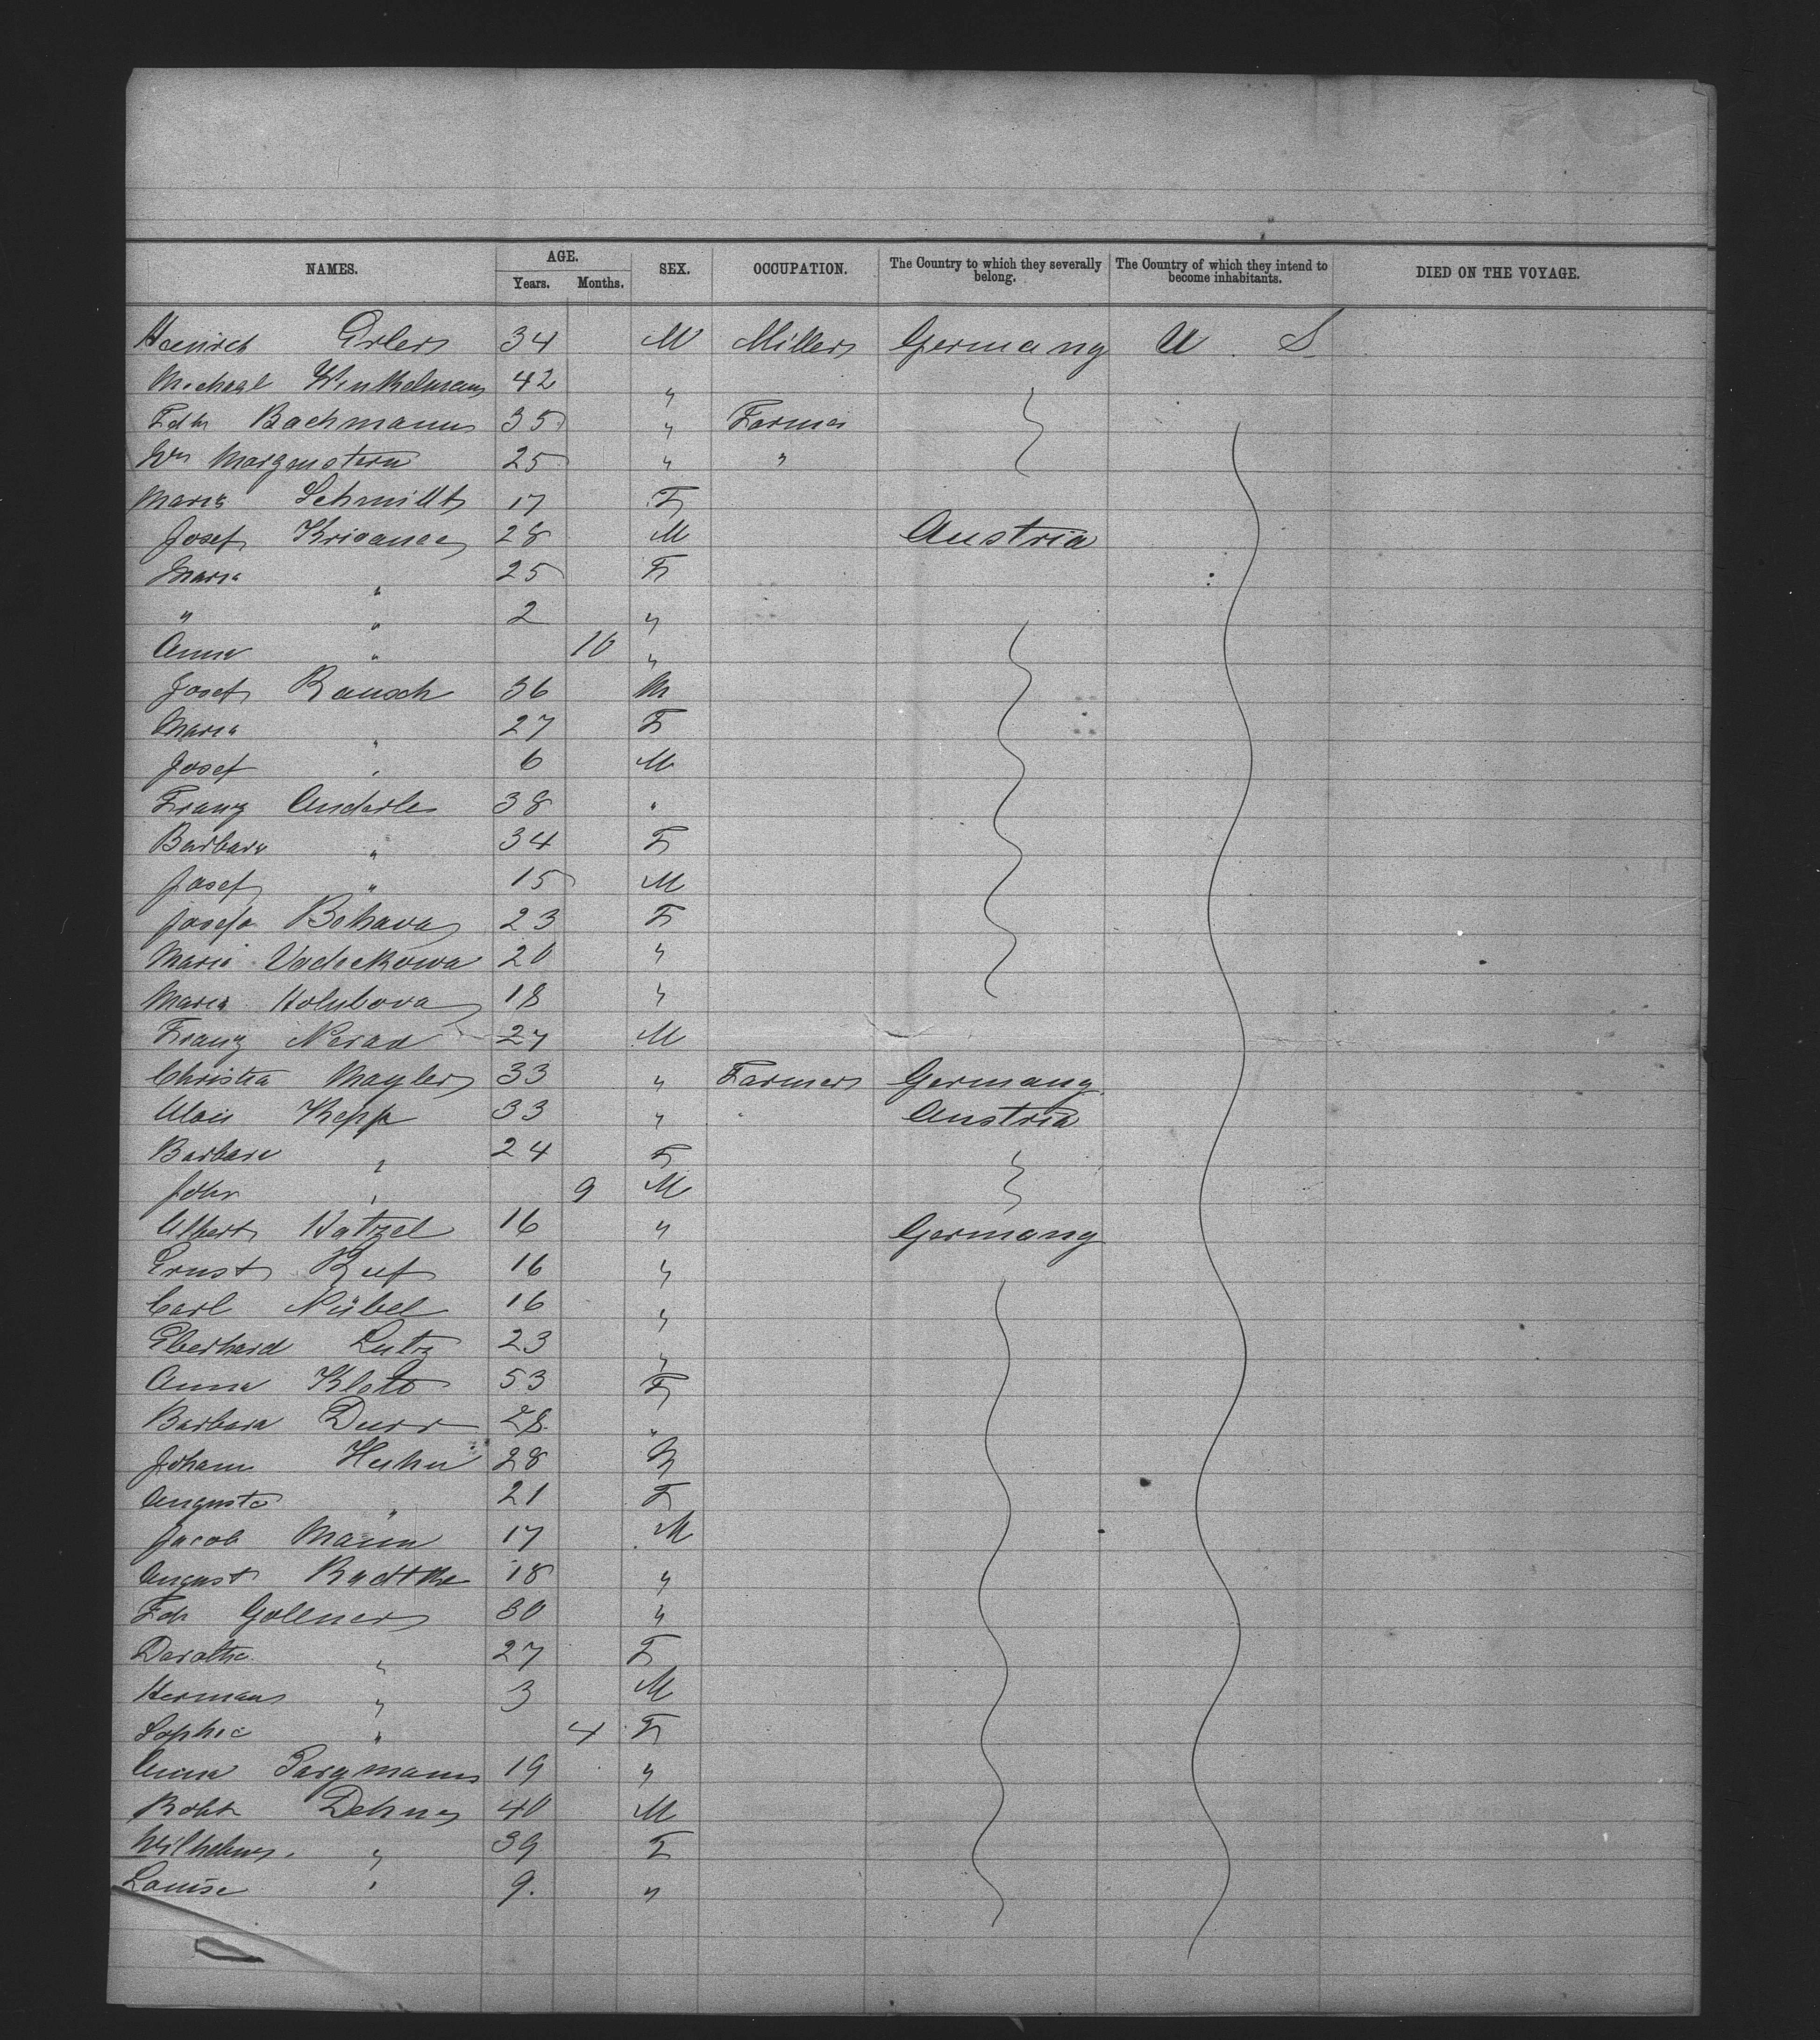 NAMES. AGE. SEX. OCCUPATION. The Country to which they severally belong. The Country of which they intend to become inhabitants. DIED ON THE VOYAGE.
Years. Months.
Heinrich Erler 34 M Miller Germany U. S
Michael Winkelmann 42 "
Fdk Bachmann 35 " Farmer
Wm Morgenstern 25 " "
Maria Schmidt 17 F
Josef Krisanec 28 M Austria
Maria " 25 F
" " 2 "
Anna " 10 "
Josef Rausch 36 M
Maria " 27 F
Josef " 6 M
Franz Anderle 38 "
Barbara " 34 F
Josef " 15 M
Josefa Bohava 23 F
Maria Vodickowa 20 "
Maria Holubova 18 "
Franz Nerad 27 M
Christia Mayler 33 " Farmer Germany
Alois Kepp 33 " " Austria
Barbara " 24 F
John " 9 M
Albert Katzel 16 " Germany
Ernst Ruf 16 "
Carl Nübel 16 "
Eberhard Lutz 23 "
Anna 53 F
Barbara Durr 28 "
Johann Huhn 28 M
Augusta " 21 F
Jacob Mann 17 M
August Radtke 18 "
Fdr Gollner 30 "
Dorothe " 27 F
Hermann " 3 M
Sophie " 4 F
Anna Bargmann 19 "
Robt Dehne 40 M
Wilhelm " 39 F
Louise " 9. "